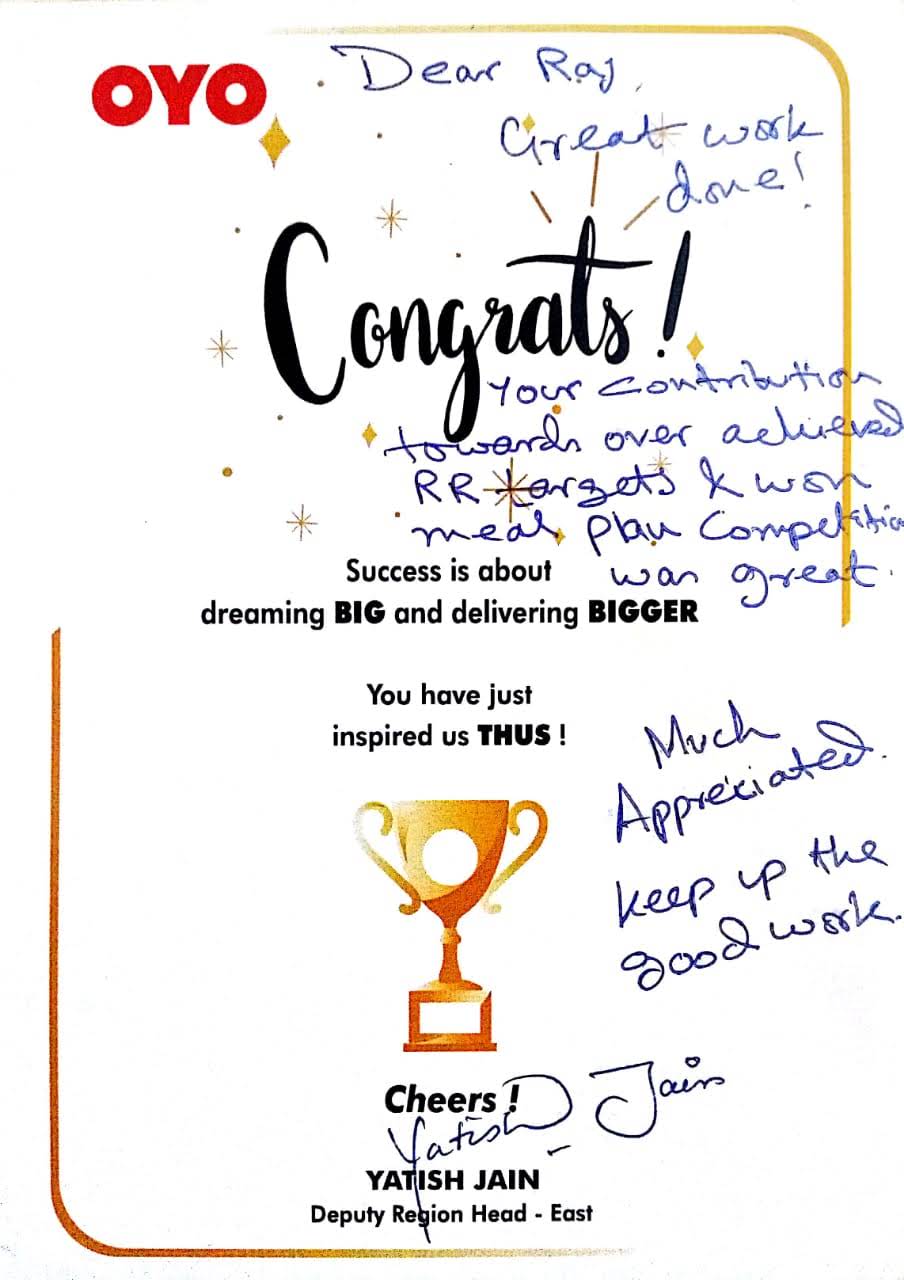 OYO
Dear Raj,
Great work
done!
Congrats!
Your contribution
towards over achieved
RR targets & won
meal plan Competition
was great.
Success is about
dreaming BIG and delivering BIGGER
You have just
inspired us THUS !
Much
Appreciated.
keep up the
good work.
Cheers !
Yatish Jain
YATISH JAIN
Deputy Region Head - East